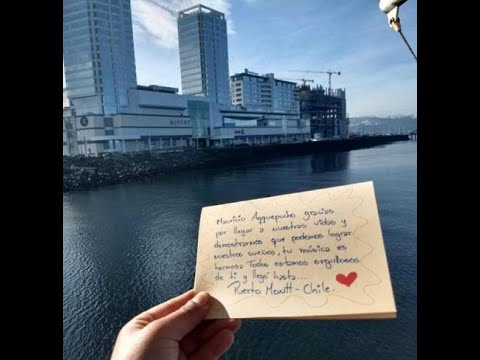 RIPLEY
Mauricio Aqquepucho gracias
por llegar a nuestras vidas y
demostrarnos que podemos lograr
nuestros sueños, tu música es
hermosa Todos estamos orgullosos
de ti y llegó hasta...
Puerto Montt - Chile.